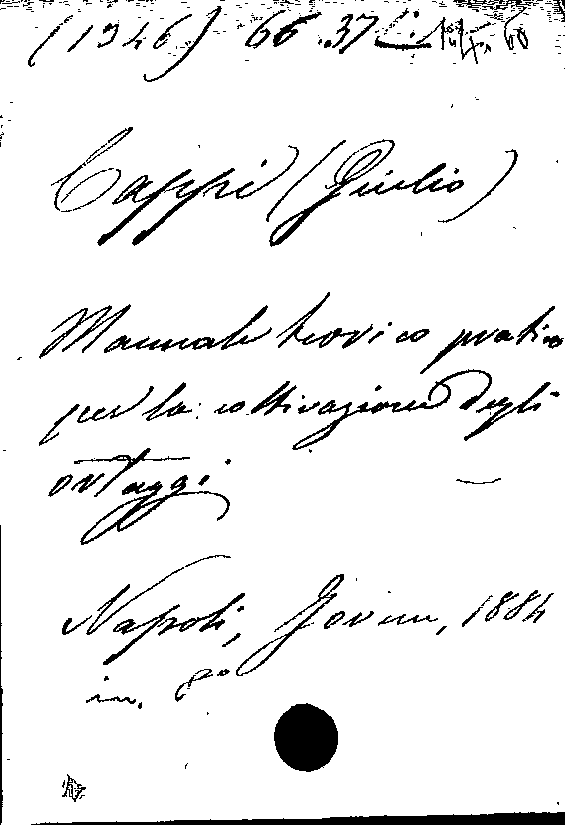 (1946) 66.37
Cappi (Giulio)
Manuale teorico pratico
per la coltivazione degli
ortaggi. —
Napoli, Jovene, 1884
in. 8º